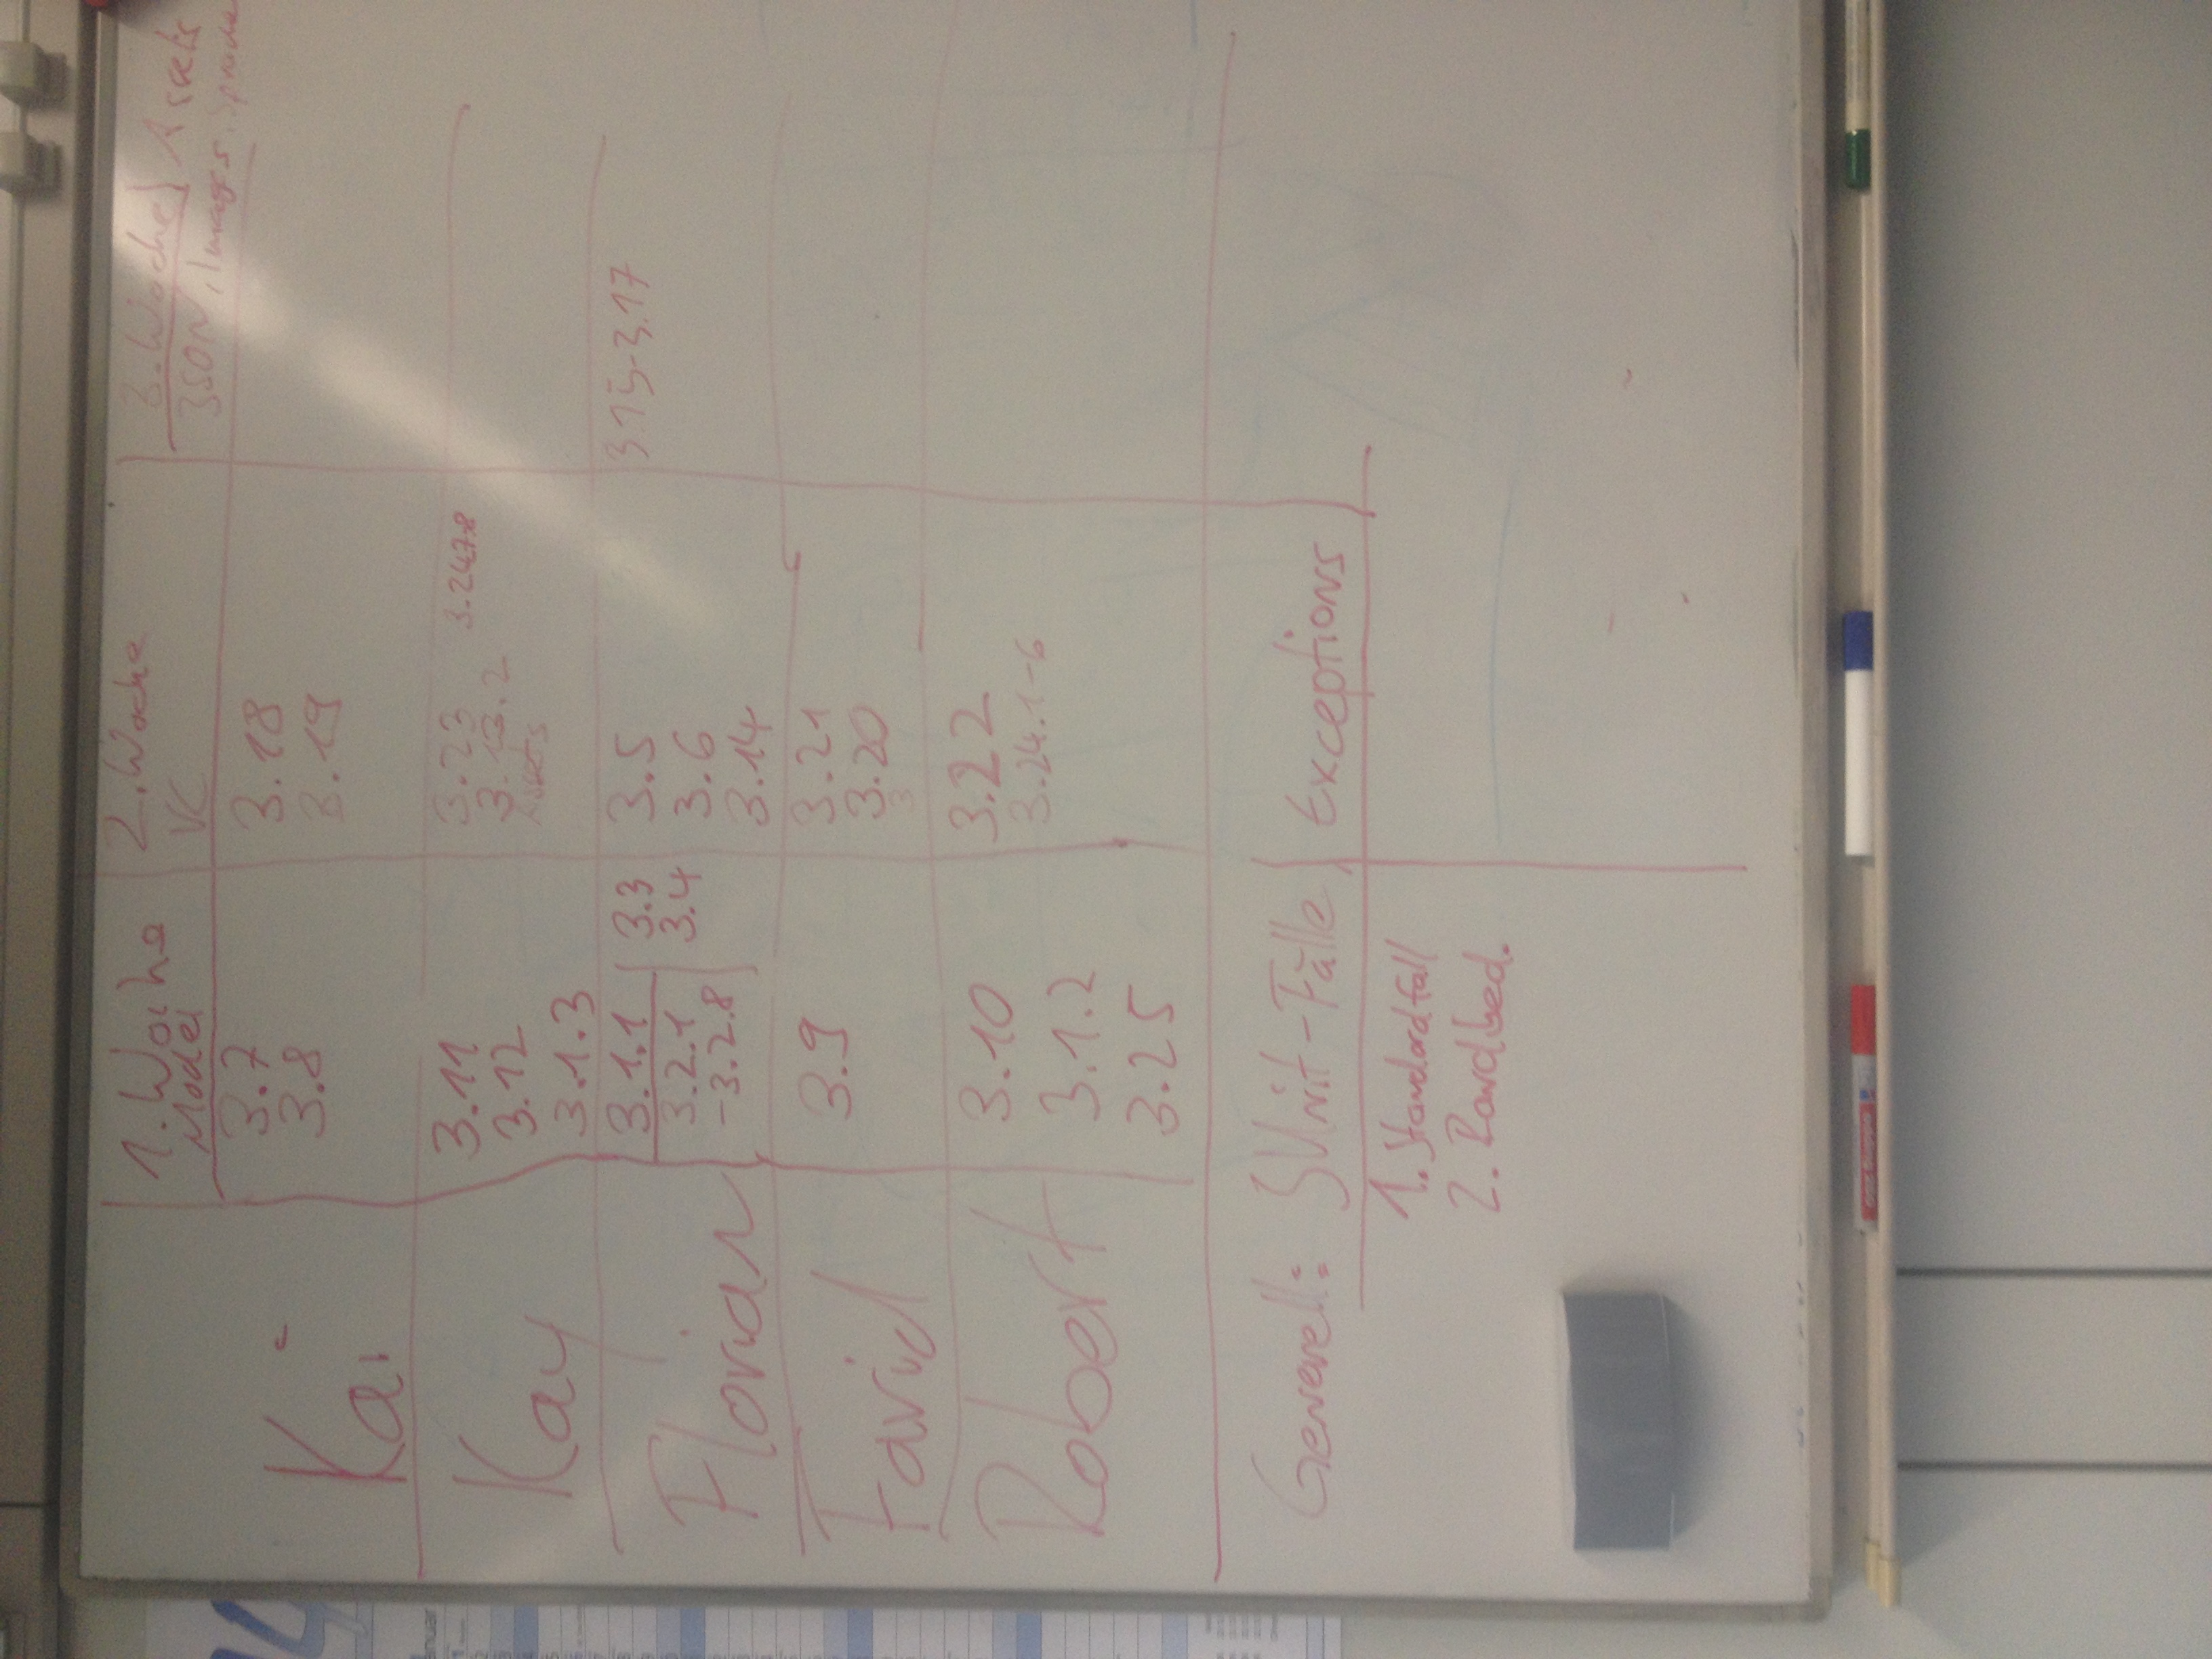 1. Woche
Model
2. Woche
VC
3. Woche Assets
JSON, Images, Sprache
Kai
3.7
3.8
3.18
3.19
Kay
3.11
3.12
3.1.3
3.23
3.13.2
Assets
3.24.7-8
Florian
3.1.1
3.2.1
-3.2.8
3.3
3.4
3.5
3.6
3.14
3.15-3.17
Farid
3.9
3.21
3.20
3
Robert
3.10
3.1.2
3.25
3.22
3.24.1-6
Generell: JUnit-Fälle Exceptions
1. Standardfall
2. Randbed.
anuar